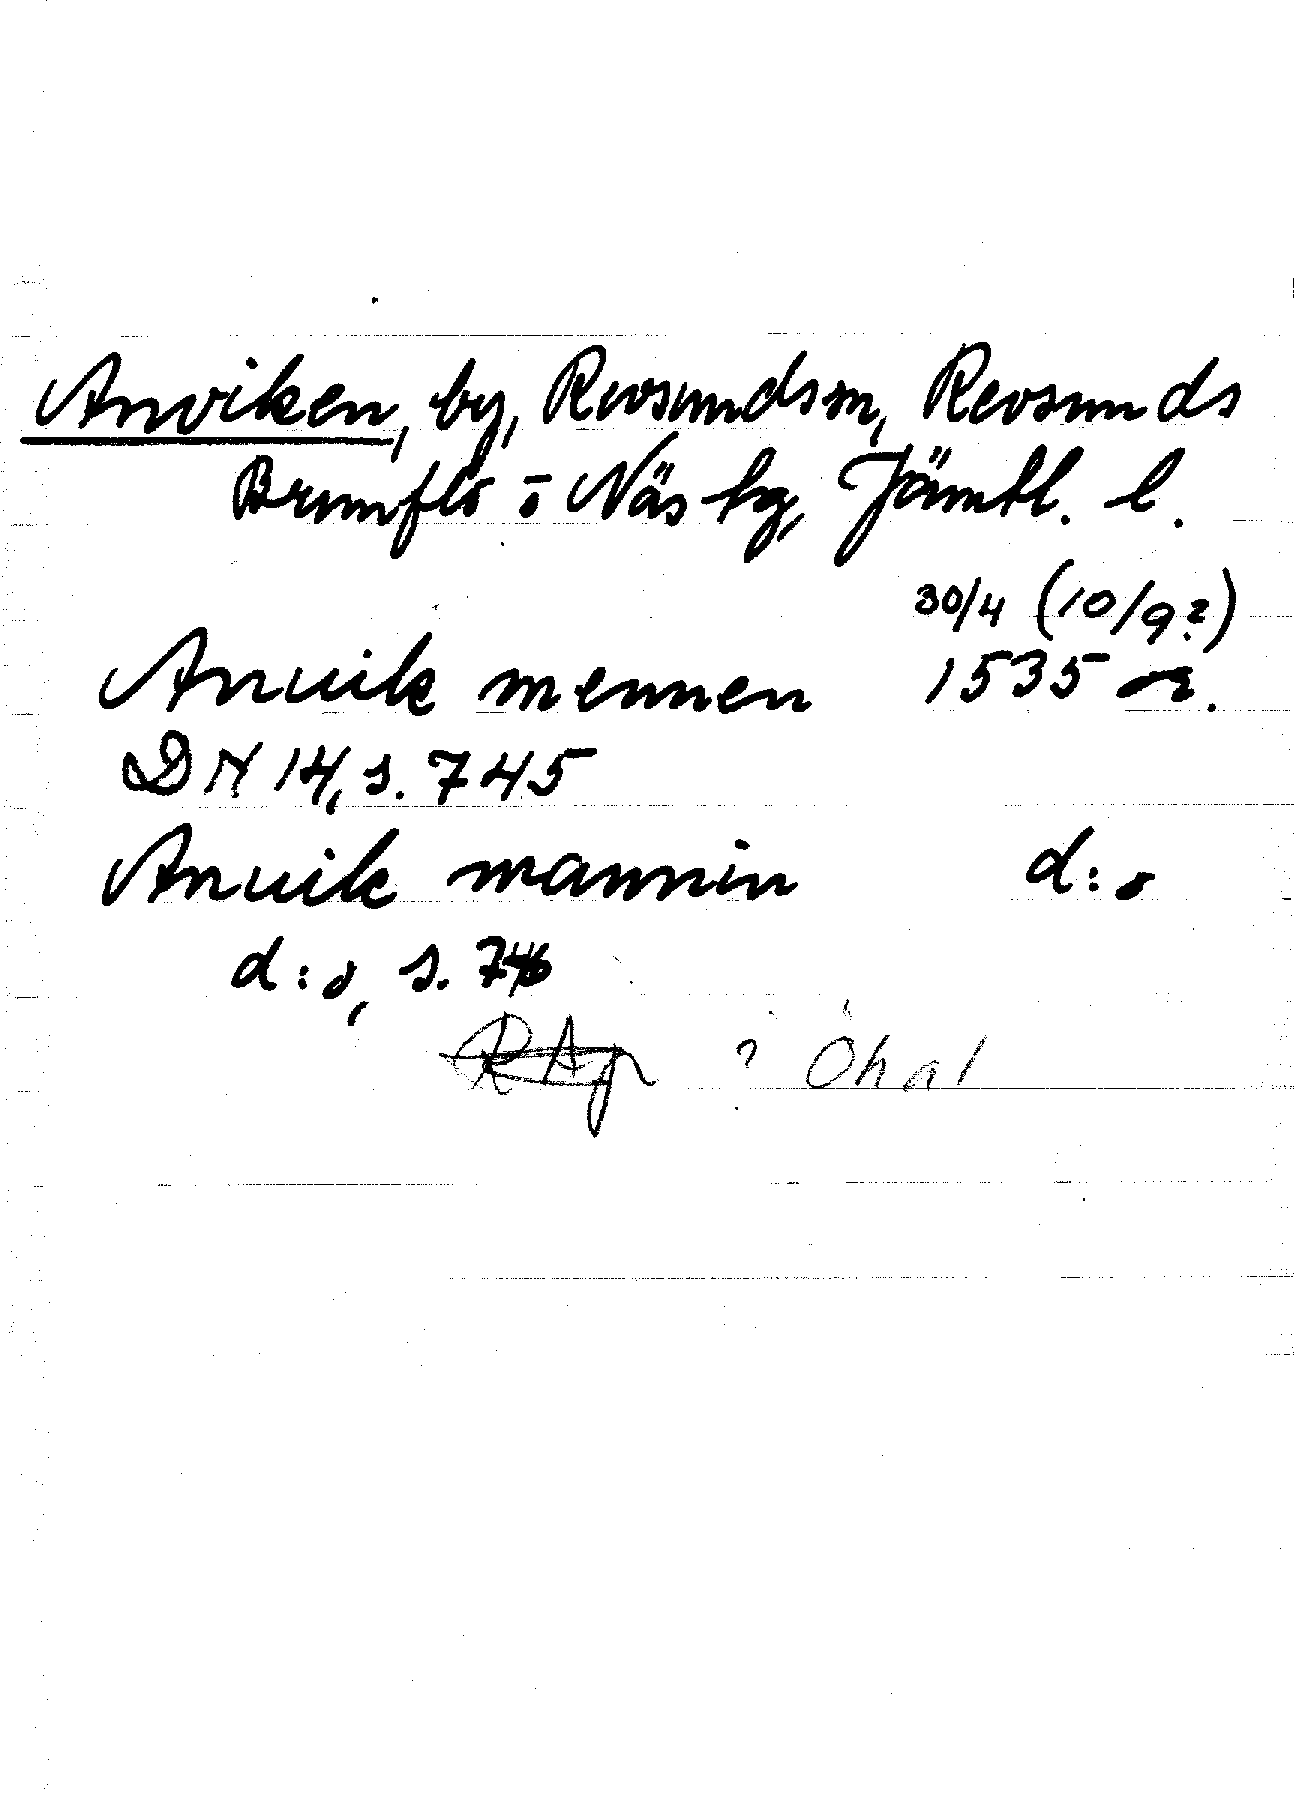 Anviken, by, Revsunds sn, Revsunds
Brunflo o Näs tg, Jämtl. l.
30/4 (10/9?)
Anuik mennen 1535 or.
DN 14, s. 745
Anuik mannin d:o
d:o, s. 746
? Öhal